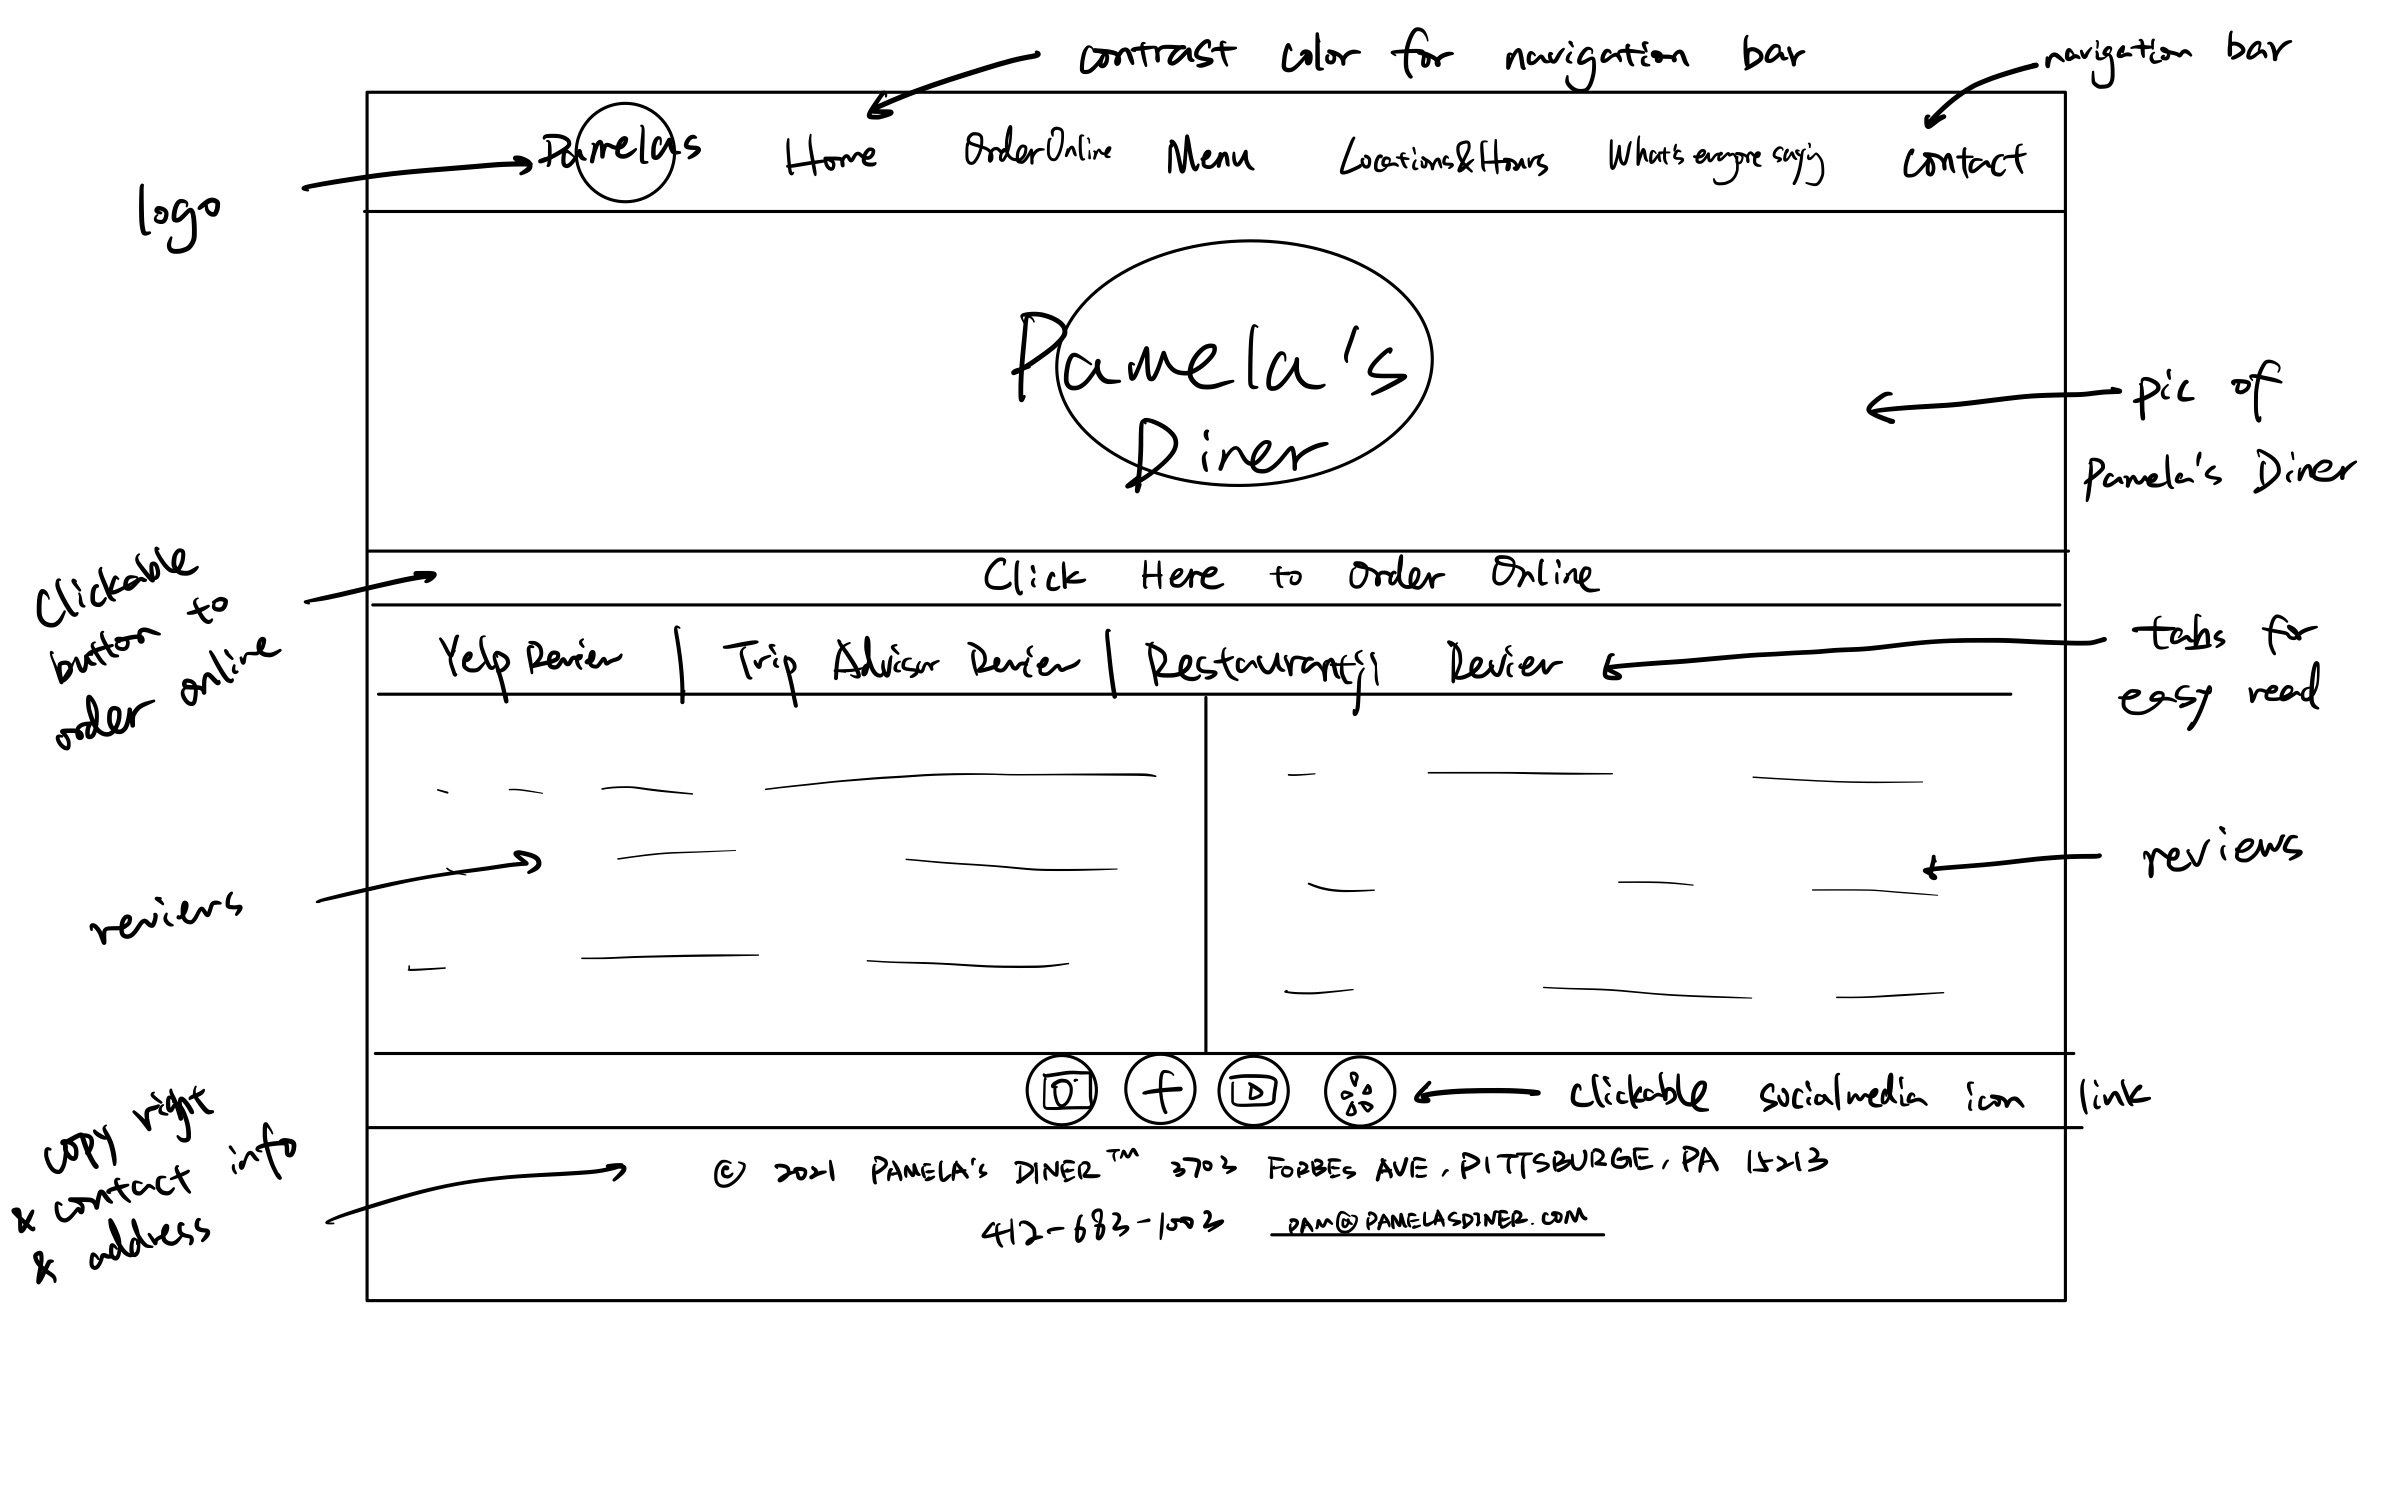 contrast color for navigation bar
navigation bar
logo
Pamelas Home Order Online Menu Locations&Hours What's everyone saying contact
Pamela's
Diner
pic of
Pamela's Diner
Clickable
button to
order online
Click Here to Order Online
Yelp Review | Trip Advisor Review | Restaurantji Review
tabs for
easy read
reviews
reviews
clickable socialmedia icon link
copy right
& contact info
& address
© 2021 PAMELA'S DINER™ 3703 FORBES AVE, PITTSBURGE, PA 15213
412-683-1003 PAM@PAMELASDINER.COM